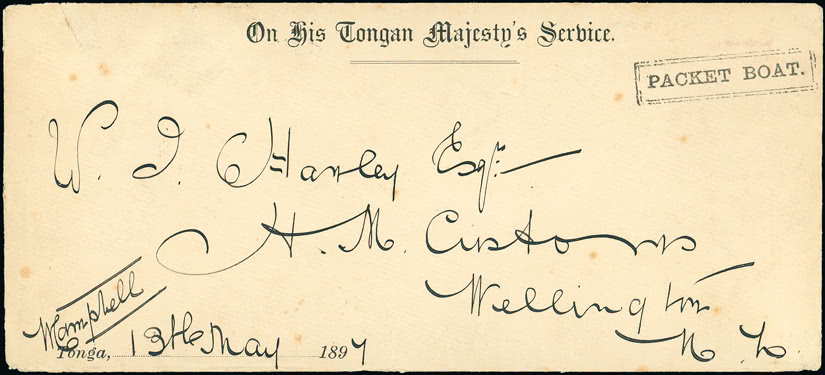 On His Tongan Majesty's Service.
PACKET BOAT.
W. J. Hawley Esqr.
H. M. Customs
Wellington
N. Z.
Tonga, 13th May 1897